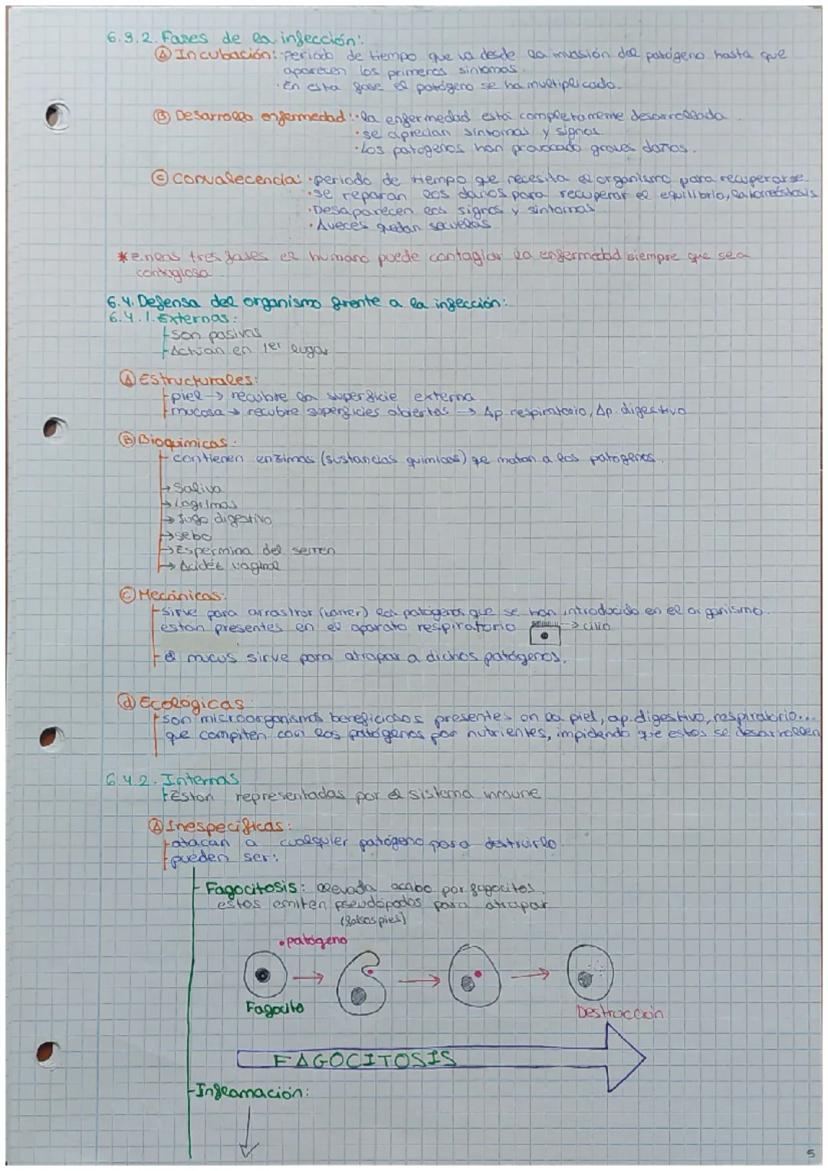 6.3.2. Fases de la infección:
Ⓐ Incubación: periodo de tiempo que va desde la invasión del patógeno hasta que
aparecen los primeros síntomas.
· En esta fase el patógeno se ha multiplicado.
Ⓑ Desarrollo enfermedad: · la enfermedad está completamente desarrollada.
· se aprecian síntomas y signos
· Los patógenos han provocado graves daños.
Ⓒ Convalecencia: · periodo de tiempo que necesita el organismo para recuperarse.
· se reparan los daños para recuperar el equilibrio, la homeóstasis
· Desaparecen los signos y síntomas
· Aveces quedan secuelas
* en las tres fases el humano puede contagiar la enfermedad siempre que sea
contagiosa
6.4. Defensa del organismo frente a la infección:
6.4.1. Externas:
Son pasivas
Actúan en 1er lugar
Ⓐ Estructurales:
piel → recubre la superficie externa
mucosa → recubre superficies abiertas → Ap respiratorio, Ap. digestivo
Ⓑ Bioquímicas:
contienen enzimas (sustancias químicas) qe matan a los patógenos.
→ Saliva
→ Lágrimas
→ Jugo digestivo
→ sebo
→ Espermina del semen
→ Acidez vaginal
Ⓒ Mecánicas:
Sirve para arrastrar (barrer) los patógenos que se han introducido en el organismo.
están presentes en el aparato respiratorio → cilio
el mucus sirve para atrapar a dichos patógenos.
ⓓ Ecológicas:
son microorganismos beneficiosos presentes en la piel, ap. digestivo, respiratorio...
que compiten con los patógenos por nutrientes, impidendo qe estos se desarrollen
6.4.2. Internas
Están representadas por el sistema inmune
Ⓐ Inespecíficas:
atacan a cualquier patógeno para destruirlo.
pueden ser:
Fagocitosis: llevada acabo por fagocitos.
estos emiten pseudópodos para atrapar
(falsos pies)
• patógeno
Fagocito
Destrucción
FAGOCITOSIS
Inflamación:
5